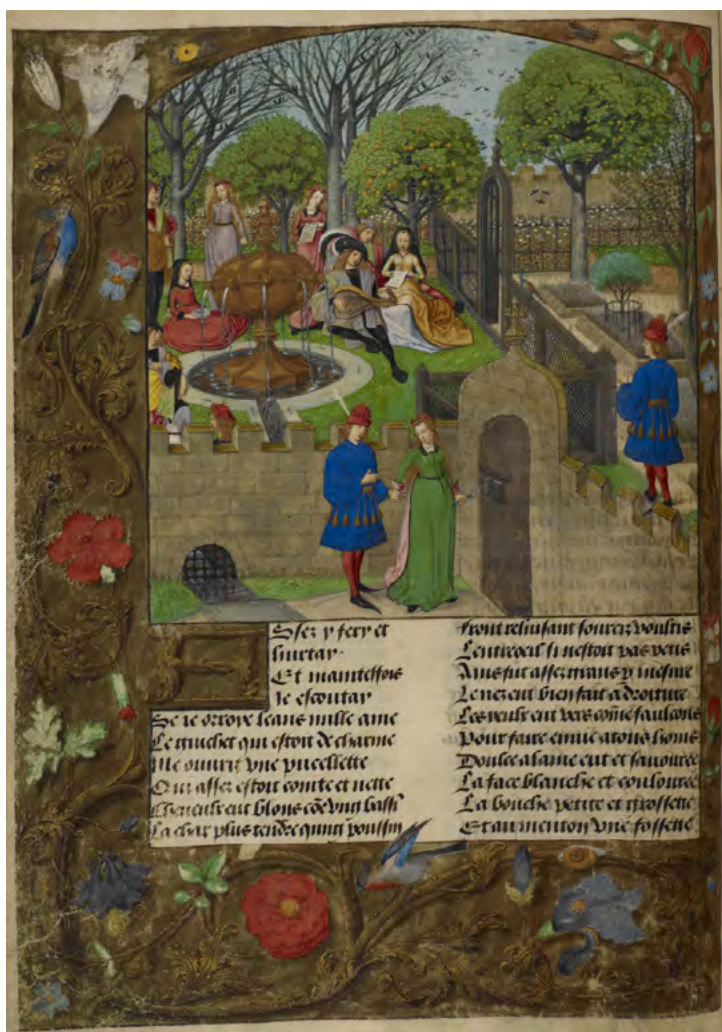 Assez y fery et
hurtay
Et maintesfois
Je escoutay
Se ie orroye leans nulle ame
Le guichet qui estoit de charme
Me ouurit vne pucellette
Qui assez estoit comte et nette
Cheueulx eut blons cõe vng bassi
La char plus tendre qung poussin
Front reluisant sourciz voultis
Lentroeil si nestoit pas petis
Ains fut assez grans p mesure
Le nez eut bien fait a droiture
Les yeulx eut vers cõme faulcons
Pour faire enuie a tous homs
Doulce alaine eut et sauouree
La face blanche et coulouree
La bouche petite et grossette
Et au menton vne fossette